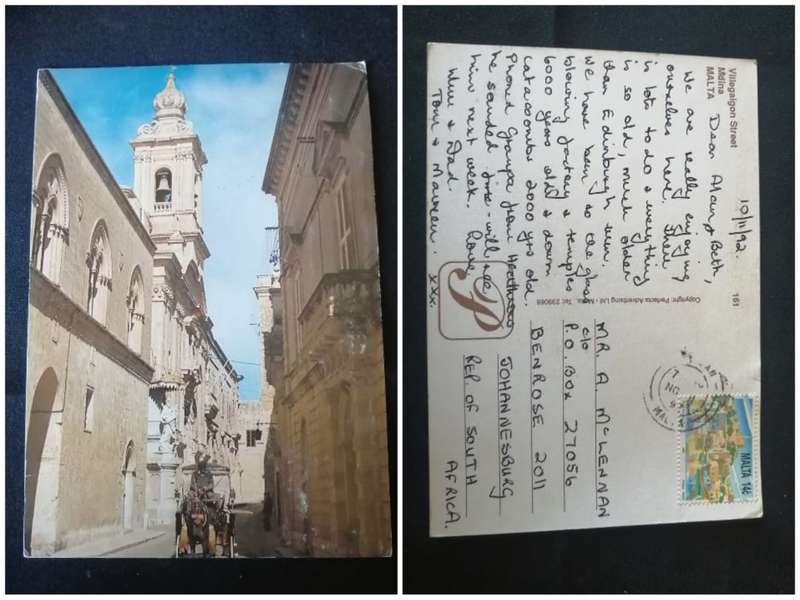 Villegaignon Street
Mdina
MALTA
10/11/92.
Dear Alan & Beth,
We are really enjoying
ourselves here. There
is lots to do & everything
is so old, much older
than Edinburgh even.
We have been to the glass
blowing factory & temples
6000 years old & down
catacombs 2000 yrs old.
Phoned Grampa from Heathrow
he sounded fine - will see
him next week. Love
Mum & Dad.
Tom & Maureen.
xxx.
161
Copyright: Perfecta Advertising Ltd - Malta. Tel: 239069
MR. A. McLENNAN
c/o
P.O. BOX 27056
BENROSE 2011
JOHANNESBURG
REP OF SOUTH
AFRICA.
MALTA 14c